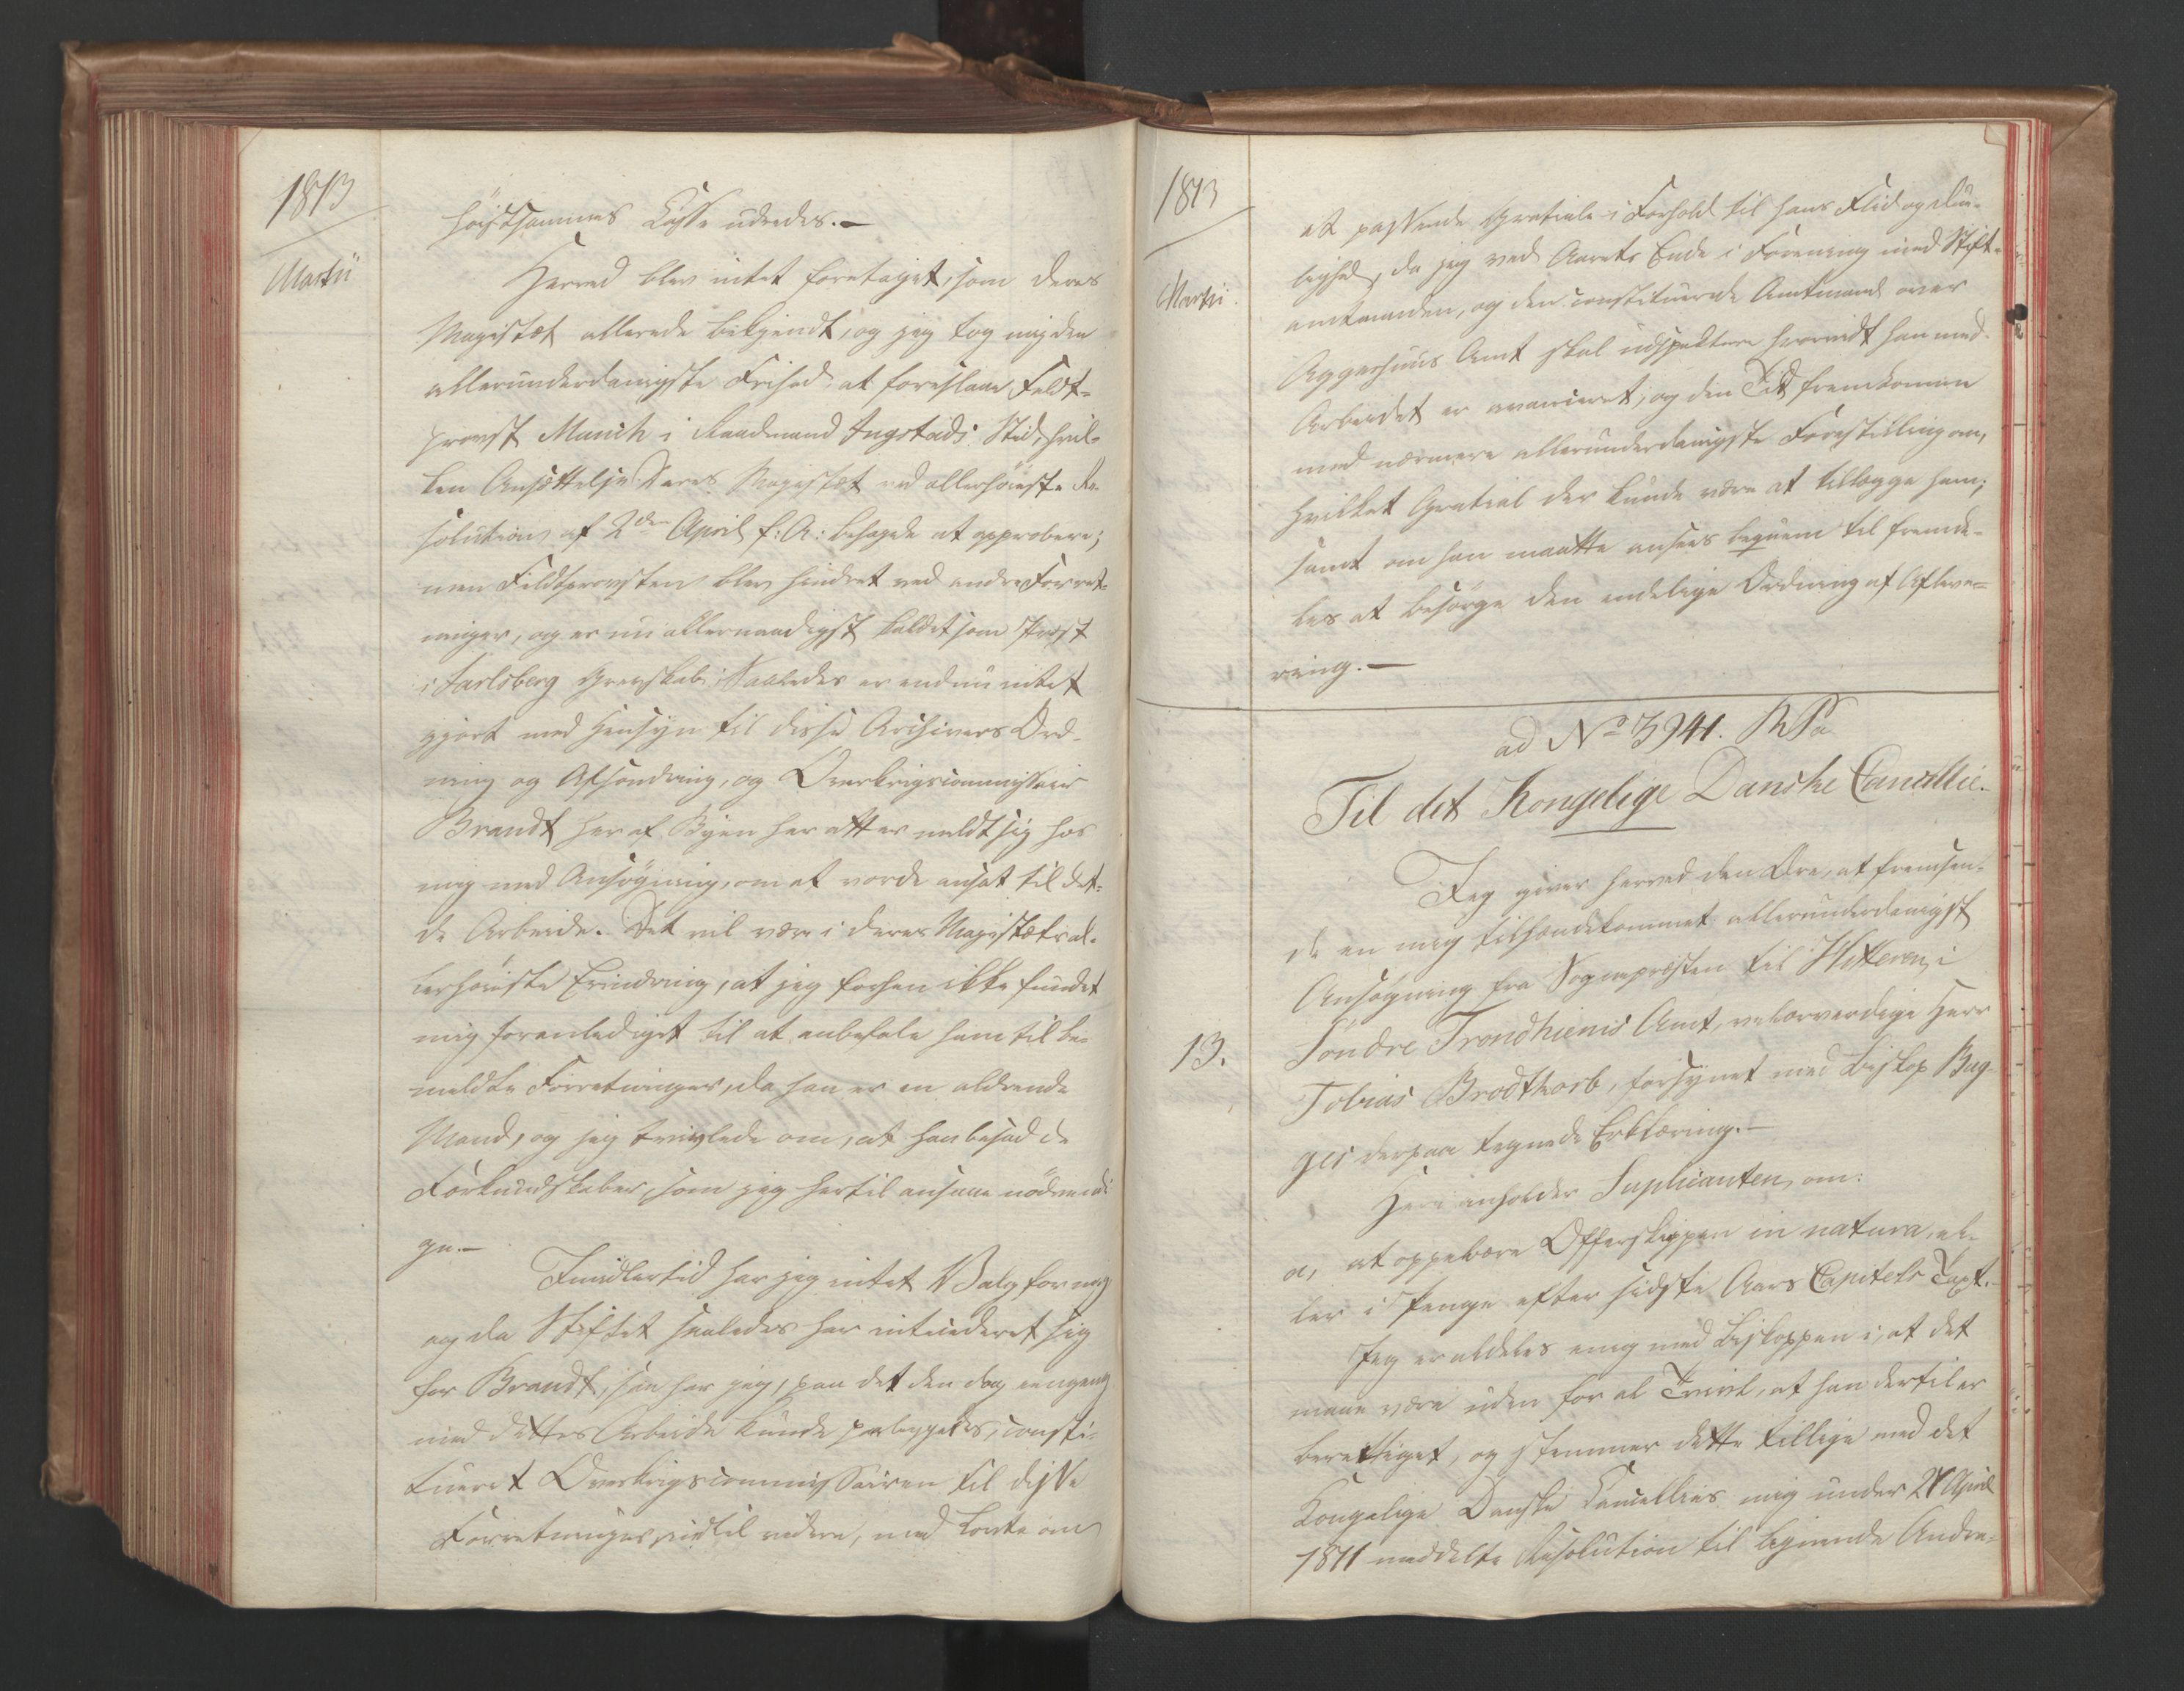 1813
Martii
høistsammes Casse udredes.—
Herved blev intet foretaget, som Deres
Majestæt allerede bekjendt, og jeg tog mig den
allerunderdanigste Frihed, at foreslaae Feldt-
provst Munch i Raadmand Ingstads Sted, hvil-
ken Ansættelse Deres Majestæt ved allerhøieste Re-
solution af 2den April f: A: behagede at approbere;
men Feldtprovsten blev hindret ved andre Forret-
ninger, og er nu allernaadigst kaldet som Præst
i Jarlsberg Grevskab. Saaledes er endnu intet
gjort med Hensyn til disse Archivers Ord-
ning og Afsondring, og Overkrigscommissair
Brandt her af Byen har atter meldt sig hos
mig med Ansøgning, om at vorde ansat til det-
te Arbeide. Det vil være i Deres Majestæts al-
lerhøieste Erindring, at jeg forhen ikke fandt
mig foranlediget til at anbefale ham til be-
meldte Forretninger, da han er en aldrende
Mand, og jeg tvivlede om, at han besad de
Forkundskaber, som jeg hertil ansaae nødvendi-
ge.—
Imidlertid har jeg intet Valg for mig
og da Stiftet saaledes har interederet sig
for Brandt, saa har jeg, paa det den dog engang
med dette Arbeide kunde paabegyndes, consti-
tueret Overkrigscommissairen til disse
Forretninger indtil videre, med Løvte om
1813
Martii.
et passende Gratiale i Forhold til hans Flid og Due-
lighed, da jeg ved Aarets Ende i Forening med Stift-
amtmanden, og den constituerede Amtmand over
Aggershuus Amt skal indspektere hvorvidt han med
Arbeidet er avanceret, og den Tid fremkomme
med nærmere allerunderdanigste Forestilling om,
hvilket Gratial der kunde være at tillægge ham;
samt om han maatte ansees beqvem til fremde-
les at besørge den endelige Ordning af Afleve-
ring.—
ad No 3941.
Til det Kongelige Danske Cancellie.
Jeg giver herved den Ære, at fremsen-
de en mig tilhændekommet allerunderdanigst
Ansøgning fra Sognepræsten til Hitteren, i
13.
Søndre Trondhiems Amt, velærværdige Herr
Tobias Brodtkorb, forsynet med Biskop Bug-
ges derpaa tegnede Erklæring.—
Heri anholder Suplicanten, om:
a, at oppebære Offerskjeppen in natura, el-
ler i Penge efter sidste Aars Capitels Taxt.
Jeg er aldeles enig med Biskoppen i, at det
maae være uden for al Tvivl, at han dertil er
berettiget, og stemmer dette tillige med det
Kongelige Danske Cancellies mig under 27 April
1811 meddelte Resolution til lignende Andra-